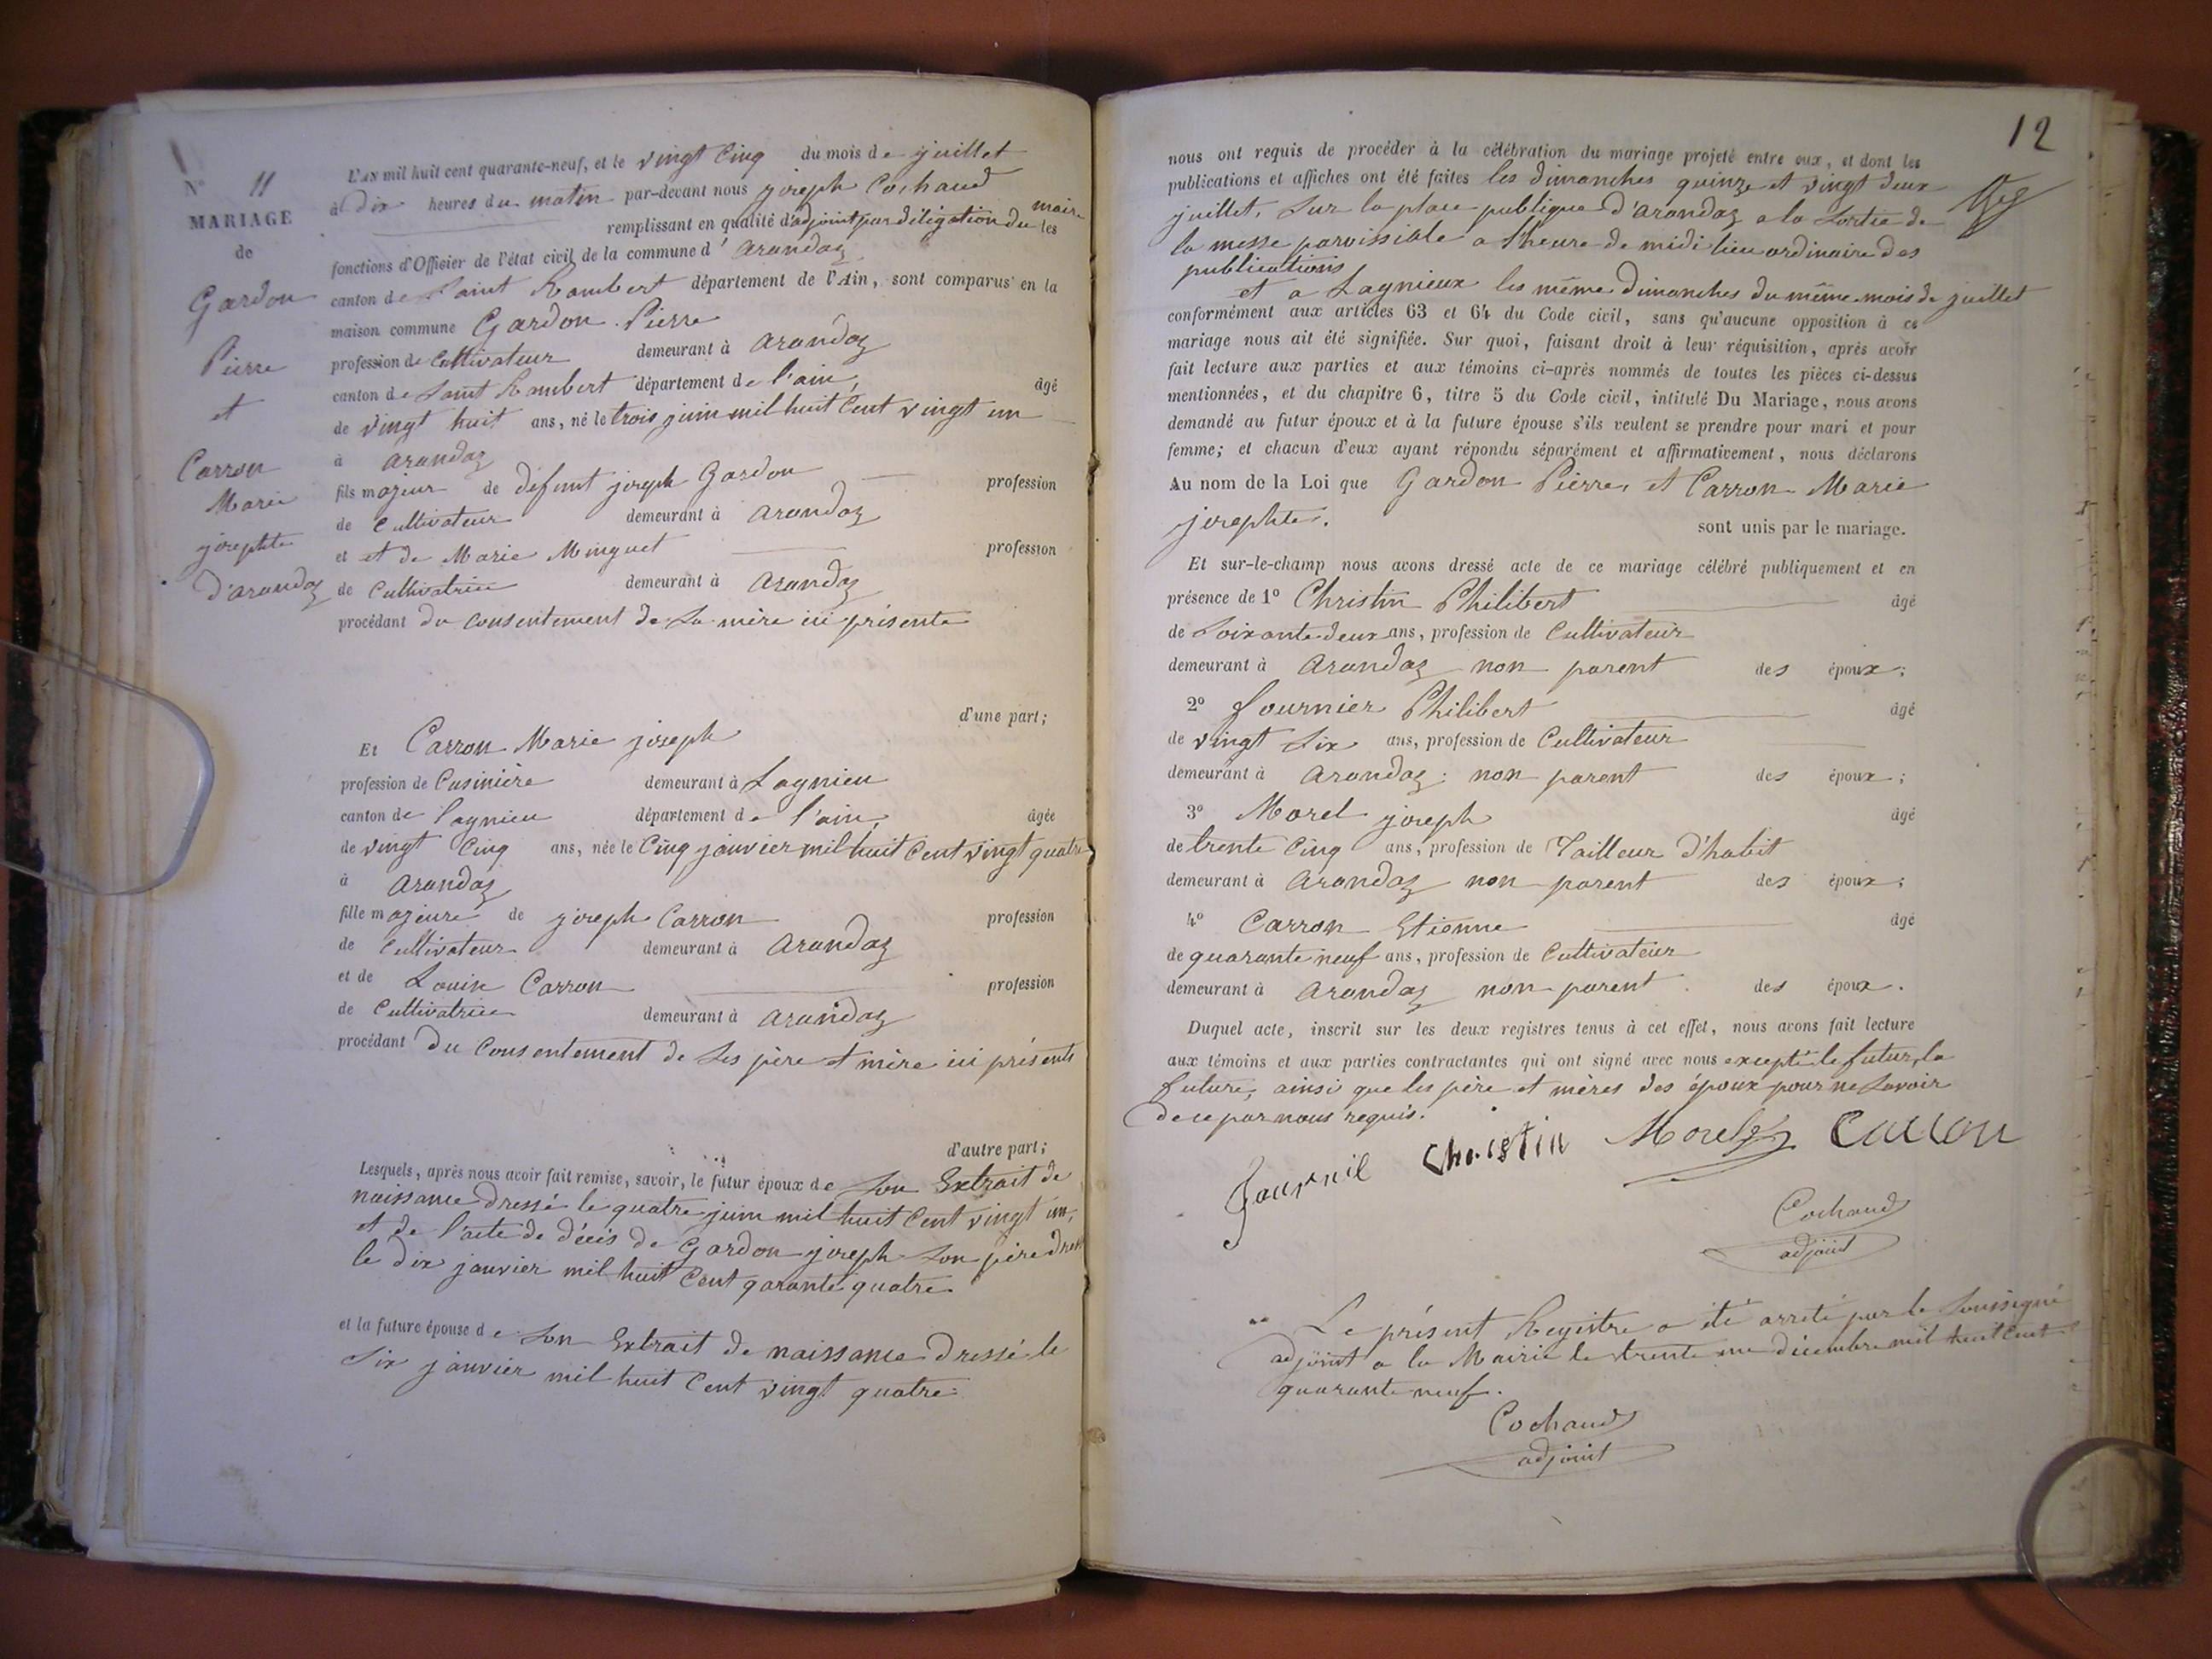 N° 11
MARIAGE
de
Gardon
Pierre
et
Carron
Marie
josephte
d'arandaz
L'AN mil huit cent quarante-neuf, et le vingt cinq du mois de juillet
à dix heures du matin par-devant nous joseph Cochaud
remplissant en qualité d'adjoint par déligation du maire les
fonctions d'Officier de l'état civil de la commune d'arandaz
canton de Saint Rambert département de l'Ain, sont comparus en la
maison commune Gardon Pierre
profession de Cultivateur demeurant à arandaz
canton de Saint Rambert département de l'ain, âgé
de vingt huit ans, né le trois juin mil huit Cent vingt un
à arandaz
fils majeur de défunt joseph Gardon profession
de Cultivateur demeurant à arandaz
et et de Marie Minguet profession
de Cultivatrice demeurant à arandaz
procédant du consentement de Sa mère ici présente
d'une part;
Et Carron Marie joseph
profession de Cusinière demeurant à Lagnieu
canton de lagnieu département de l'ain, âgée
de vingt Cinq ans, née le Cinq janvier mil huit Cent vingt quatre
à arandaz
fille majeure de joseph Carron profession
de Cultivateur demeurant à arandaz
et de Louise Carron profession
de Cultivatrice demeurant à arandaz
procédant du Consentement de Ses père et mère ici présents
d'autre part;
Lesquels, après nous avoir fait remise, savoir, le futur époux de Son Extrait de
naissance dressé le quatre juin mil huit Cent vingt un,
et de l'acte de décis de Gardon joseph Son père
le dix janvier mil huit Cent qarante quatre
et la future épouse de Son Extrait de naissance dressé le
Six janvier mil huit Cent vingt quatre
12
nous ont requis de procéder à la célébration du mariage projeté entre eux, et dont les
publications et affiches ont été faites les dimanches quinze et vingt deux
juillet, Sur la place publique d'arandaz a la Sortie de
la messe paroissiale a l'heure de midi lieu ordinaire des
publications
et a Lagnieux les même dimanches du même mois de juillet
conformément aux articles 63 et 64 du Code civil, sans qu'aucune opposition à ce
mariage nous ait été signifiée. Sur quoi, faisant droit à leur réquisition, après avoir
fait lecture aux parties et aux témoins ci-après nommés de toutes les pièces ci-dessus
mentionnées, et du chapitre 6, titre 5 du Code civil, intitulé Du Mariage, nous avons
demandé au futur époux et à la future épouse s'ils veulent se prendre pour mari et pour
femme; et chacun d'eux ayant répondu séparément et affirmativement, nous déclarons
Au nom de la Loi que Gardon Pierre, et Carron Marie
josephte. sont unis par le mariage.
Et sur-le-champ nous avons dressé acte de ce mariage célébré publiquement et en
présence de 1° Christin Philibert âgé
de Soixante deux ans, profession de Cultivateur
demeurant à arandaz non parent des époux;
2° fournier Philibert âgé
de vingt Six ans, profession de Cultivateur
demeurant à arandaz; non parent des époux;
3° Morel joseph âgé
de trente Cinq ans, profession de Tailleur d'habit
demeurant à arandaz non parent des époux;
4° Carron Etienne âgé
de quarante neuf ans, profession de Cultivateur
demeurant à arandaz non parent des époux.
Duquel acte, inscrit sur les deux registres tenus à cet effet, nous avons fait lecture
aux témoins et aux parties contractantes qui ont signé avec nous excepté le futur, la
future, ainsi que les père et mères des époux pour ne Savoir
de ce par nous requis.
Christin Morel Carron
Cochaud
adjoint
Le présent Registre a été arrêté par le Soussigné
adjoint a la Mairie le trente un décembre mil huit Cent
quarante neuf.
Cochaud
adjoint